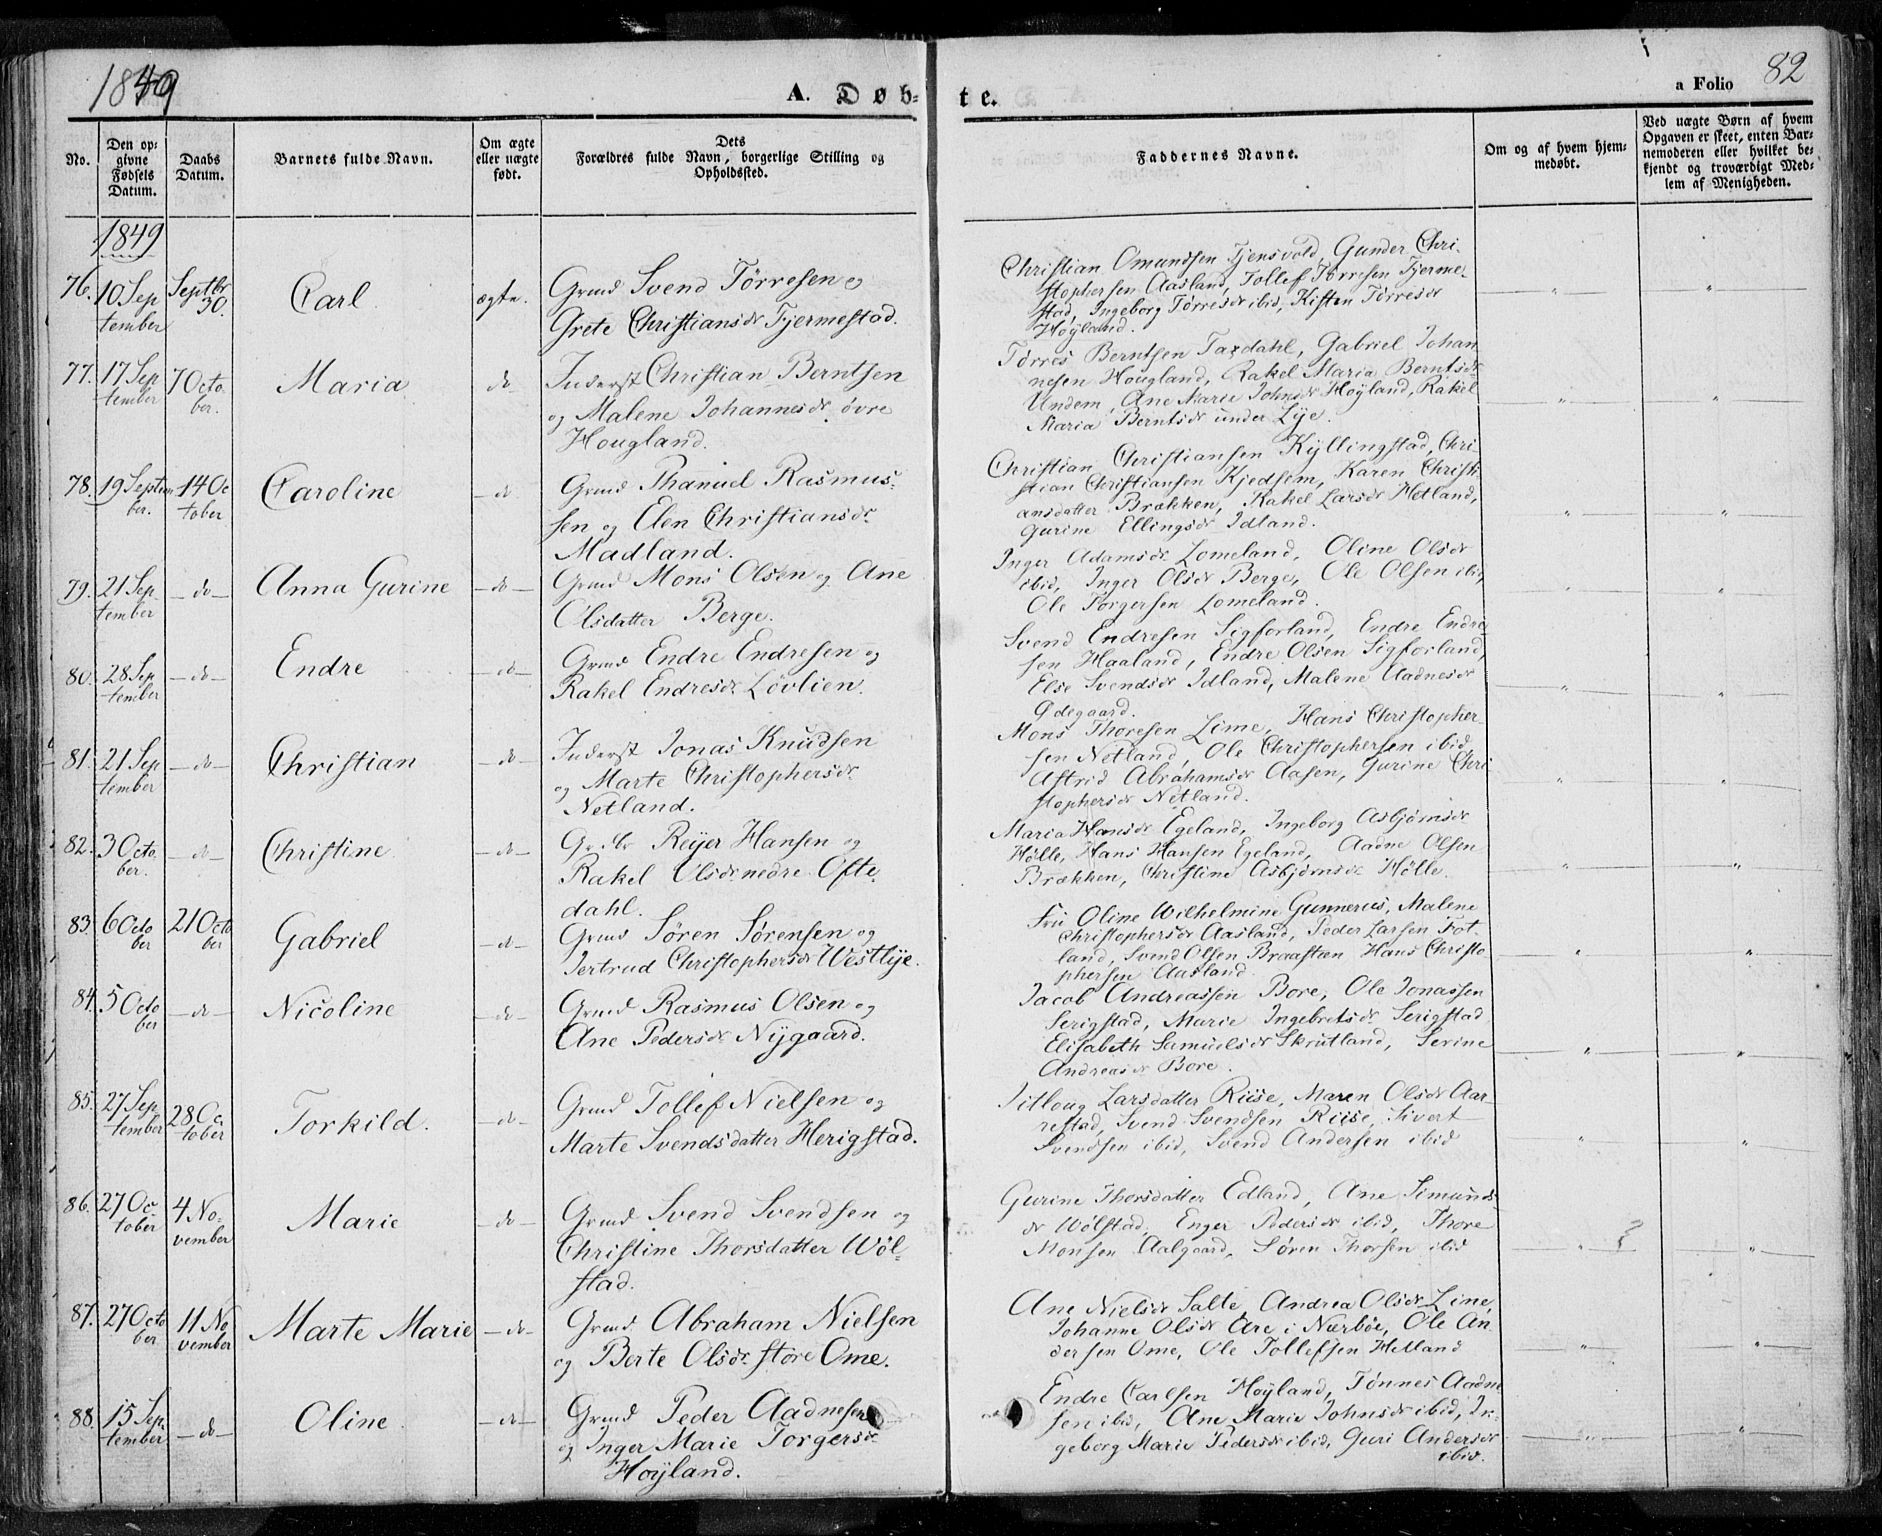 1849
A. Døb-
te.
a Folio 82
No.
Den op-
givne
Fødsels
Datum.
Daabs
Datum.
Barnets fulde Navn.
Om ægte
eller uægte
født.
Dets
Forældres fulde Navn, borgerlige Stilling og
Opholdssted.
Faddernes Navne.
Om og af hvem hjem-
medøbt.
Ved uægte Børn af hvem
Opgaven er skeet, enten Bar-
nemoderen eller hvilket be-
kjendt og troværdigt Med-
lem af Menigheden.
1849
76. 10 Sep
tember
Septbr
30.
Carl
ægte.
Grmd Svend Tørresen og
Grete Christiansdr Fjermestad.
Christian Omundsen Tjensvold, Gunder Chri-
stophersen Aasland, Tollef Tørresen Fjerme-
stad, Ingeborg Tørresdr ibid, Kisten Tørresdr
Høyland.
77. 17 Sep
tember
7 Octo-
ber.
Maria
do
Inderst Christian Berntsen
og Malene Johannesdr øvre
Hougland.
Tørres Berntsen Taxdahl, Gabriel Johan
nesen Hougland, Rakel Maria Berntsdr
Undem, Ane Marie Johnsdr Høyland, Rakel
Maria Berntsdr under Lye.
78. 19 Septem
ber.
14 Oc
tober
Caroline
do
Grmd Thaniel Rasmus-
sen og Elen Christiansdr
Madland.
Christian Christiansen Kyllingstad, Chri
stian Christiansen Kjedsem, Karen Christi
ansdatter Brækken, Rakel Larsdr Hetland,
Gurine Ellingsdr Idland.
79. 21 Sep
tember
do
Anna Gurine
do
Grmd Mons Olsen og Ane
Olsdatter Berge.
Inger Adamsdr Lomeland, Oline Olsdr
ibid, Inger Olsdr Berge, Ole Olsen ibid,
Ole Torgersen Lomeland.
80. 28 Sep
tember
do
Endre
do
Grmd Endre Endresen og
Rakel Endresdr Løvlien.
Svend Endresen Sigforland, Endre Endre
sen Haaland, Endre Olsen Sigforland,
Else Svendsdr Idland, Malene Aadnesdr
Ødegaard.
81. 21 Sep
tember
do
Christian
do
Inderst Jonas Knudsen
og Marte Christophersdr
Netland.
Mons Thoresen Lime, Hans Christopher
sen Netland, Ole Christophersen ibid,
Astrid Abrahamsdr Aasen, Gurine Chri
stophersdr Netland.
82. 3 Octo
ber.
do
Christine
do
Reijer Hansen og
Rakel Olsdr nedre Ofte
dahl.
Maria Hansdr Egeland, Ingeborg Asbjørnsdr
Hølle, Hans Hansen Egeland, Aadne Olsen
Brækken, Christine Asbjørnsdr Hølle.
83. 6 Octo
ber
21 Octo
ber
Gabriel
do
Grmd Søren Sørensen og
Jertrud Christophersdr Westlye.
Fru Oline Wilhelmine Gunnerus, Malene
Christophersdr Aasland, Peder Larsen Fot-
land, Svend Olsen Braasteen Hans Christo
phersen Aasland
84. 5 Octo
ber
do
Nicoline
do
Grmd Rasmus Olsen og
Ane Pedersdr Nygaard.
Jacob Andreassen Bore, Ole Jonassen
Serigstad, Marie Ingebretsdr Serigstad
Elisabeth Samuelsdr Skrutland, Serine
Andreasdr Bore.
85. 27 Sep
tember
28 Oc
tober
Torkild.
do
Grmd Tollef Nielsen og
Marte Svendsdatter Herigstad.
Sitloug Larsdatter Riise, Maren Olsdr Aar-
restad, Svend Svendsen Riise, Sivert
Svendsen ibid, Svend Andersen ibid
86. 27 Oc
tober
4 No-
vember
Marie
do
Grmd Svend Svendsen og
Christine Thorsdatter Wøl-
stad.
Gurine Thorsdatter Edland, Ane Simunds
dr Wølstad, Enger Pedersdr ibid, Thore
Monsen Aalgaard, Søren Thorsen ibid
87. 27 Octo
ber
11 No
vember
Marte Marie
do
Grmd Abraham Nielsen
og Berte Olsdr store Ome.
Ane Nielsdr Salte, Andrea Olsdr Line,
Johanne Olsdr Are i Nærbøe, Ole An
dersen Ome, Ole Tollefsen Hetland
88. 15 Sep
tember
do
Oline
do
Grmd Peder Aadnesen
og Inger Marie Torgersdr
Høyland.
Endre Carlsen Høyland, Tønnes Aadne
sen ibid, Ane Marie Johnsdr ibid, In
geborg Marie Pedersdr ibid, Guri Andersdr
ibid.